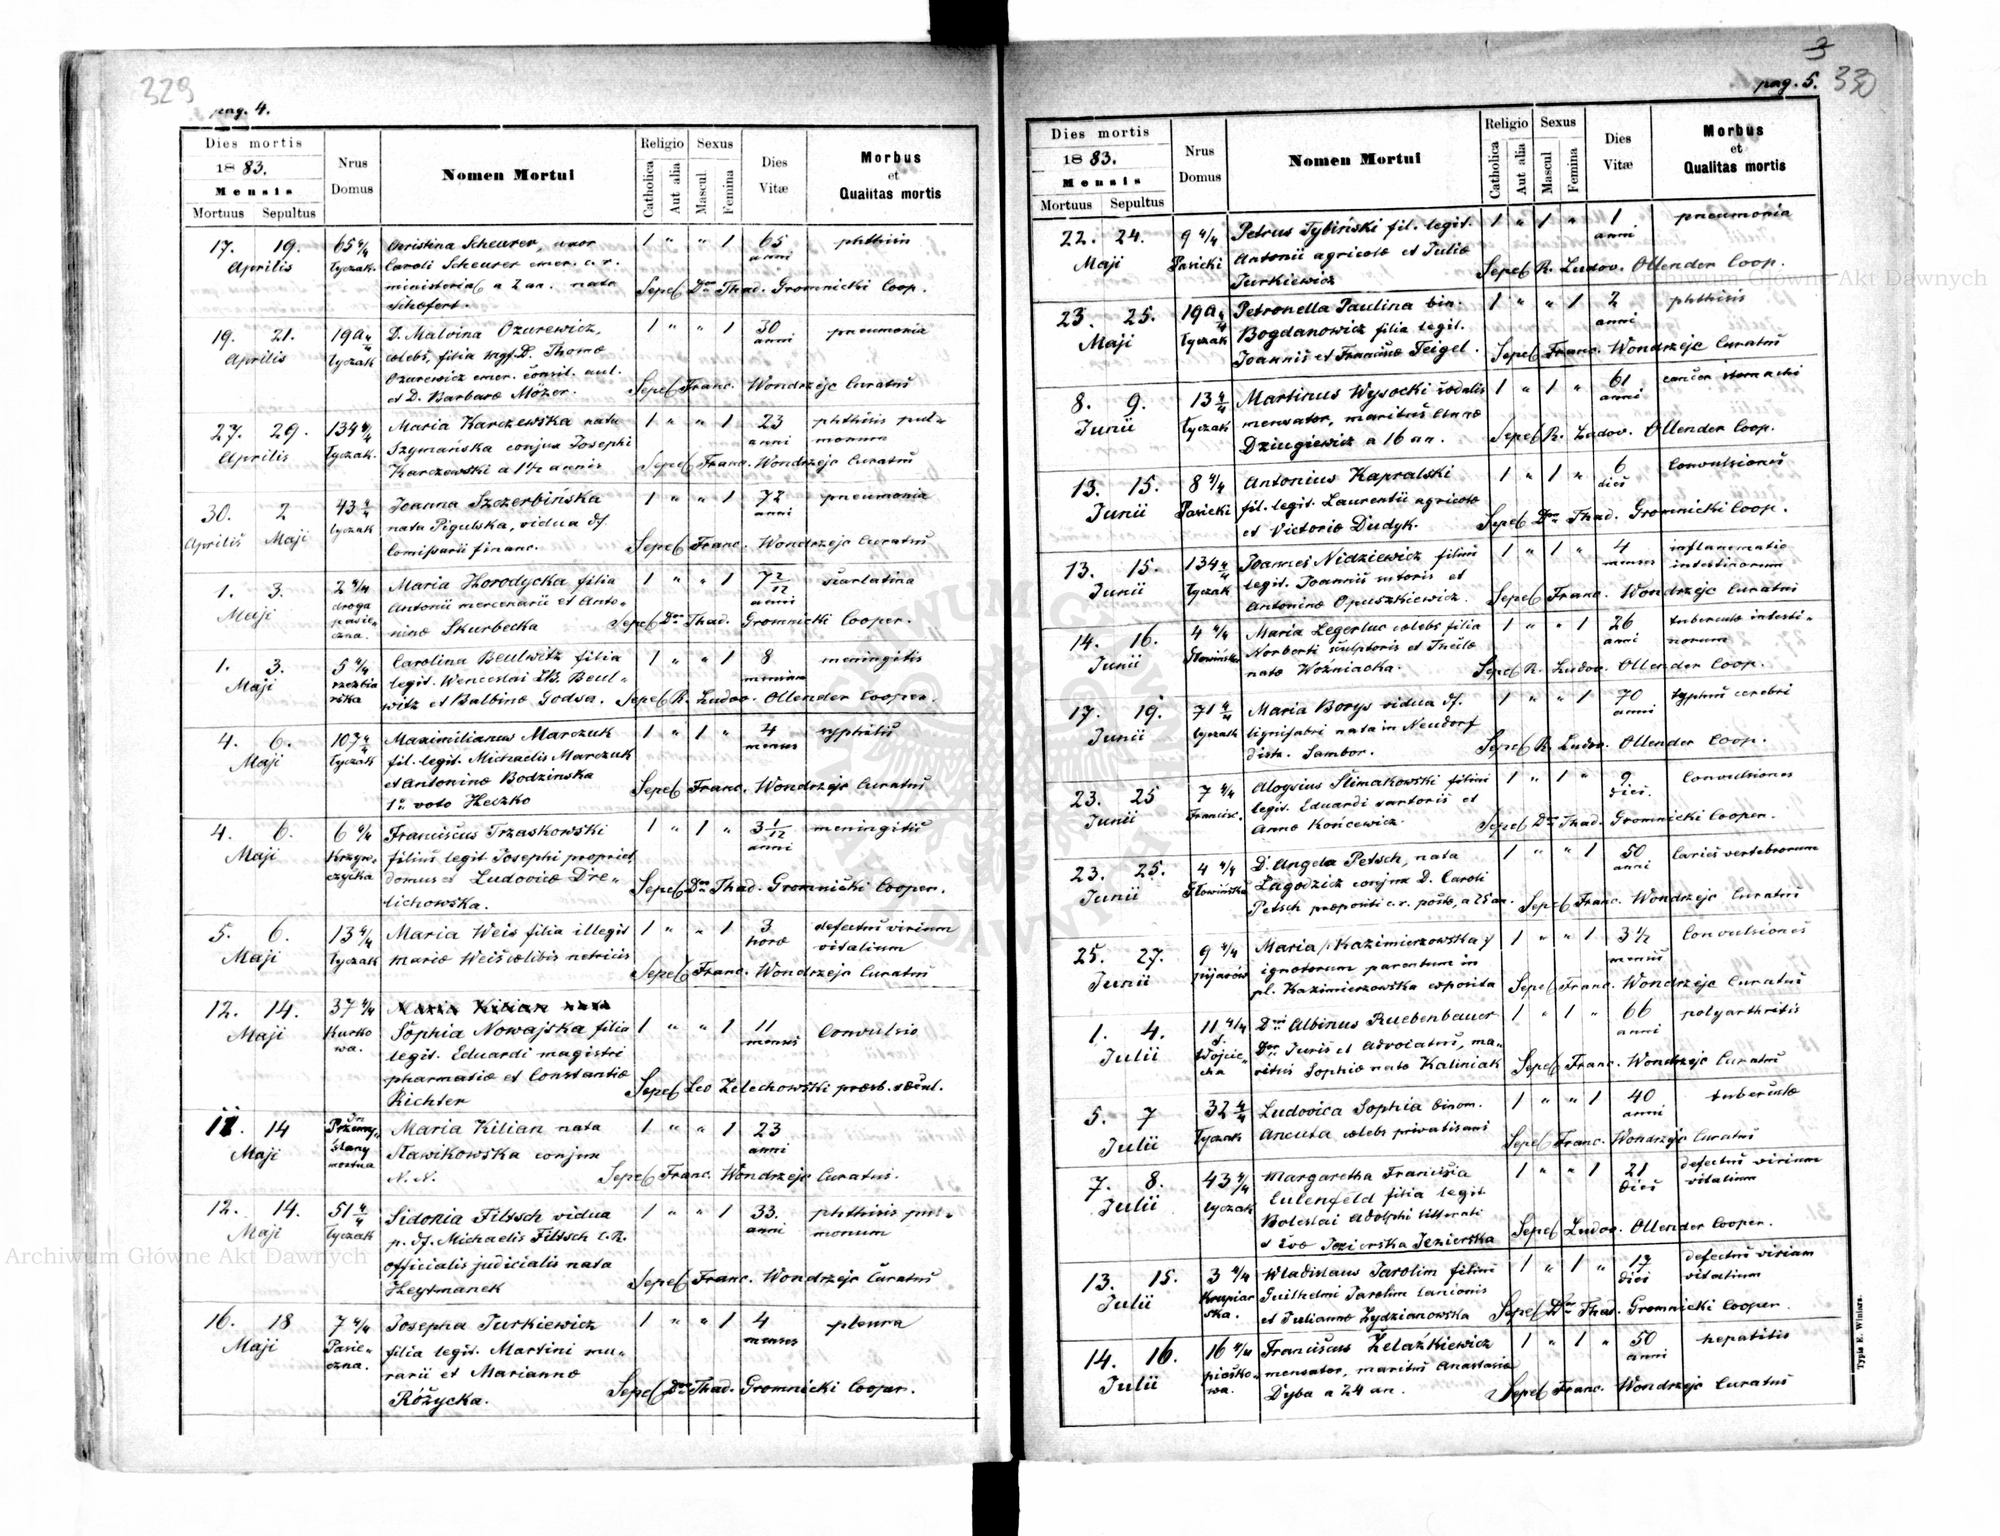 329
pag. 4.
Dies mortis
1883.
Mensis
Mortuus Sepultus
Nrus
Domus
Nomen Mortui
Religio
Catholica
Aut alia
Sexus
Mascul.
Femina
Dies
Vitæ
Morbus
et
Qualitas mortis
17. 19. 65 4/4 Christina Scheurer, uxor 1 " " 1 65 phthisis
Aprilis Łyczak. Caroli Scheurer emer. c. r. anni
ministerial a 2 an. nata Sepel Don Thad. Gromnicki Coop.
Schefert.
19. 21. 19a 4/4 D. Malvina Ozurewicz, 1 " " 1 30 pneumonia
Aprilis Łyczak cœlebs, filia mgf. D. Thomæ anni
Ozurewicz emer. consil. aul.
et D. Barbaræ Mözer. Sepel Franc. Wondrzejc Curatus
27. 29. 134 4/4 Maria Karczewska nata 1 " " 1 23 phthisis pul-
Aprilis Łyczak. Szymańska conjux Josephi anni monum
Karczewski a 1 1/2 annis Sepel Franc. Wondrzejc Curatus
30. 2 43 4/4 Joanna Szczerbińska 1 " " 1 72 pneumonia
Aprilis Maji Łyczak nata Pigulska, vidua df. anni
Comissarii financ. Sepel Franc. Wondrzejc Curatus
1. 3. 2 4/4 Maria Horodycka filia 1 " " 1 7 2/12 scarlatina
Maji droga Antonii mercenarii et Anto- anni
pasie-
czna. ninæ Skurbecka Sepel Don Thad. Gromnicki Cooper.
1. 3. 5 4/4 Carolina Beulwitz filia 1 " " 1 8 meningitis
Maji rzezbia legit. Wenceslai LB. Beul-
rska witz et Balbinæ Godsa. Sepel R. Ludov. Ollender Cooper.
4. 6. 107 4/4 Maximilianus Marczuk 1 " 1 " 4 syphilis
Maji Łyczak fil. legit. Michaelis Marczuk menses
et Antoninæ Bodzinska
1o voto Heczko Sepel Franc. Wondrzejc Curatus
4. 6. 6 4/4 Franciscus Trzaskowski 1 " 1 " 3 1/12 meningitis
Maji Krzyw- filius legit Josephi propriet anni
czycka domus et Ludovicæ Dre- Sepel Don Thad. Gromnicki Cooper.
lichowska.
5. 6. 13 4/4 Maria Weis filia illegit 1 " " 1 3 defectus virium
Maji Łyczak Mariæ Weis cœlibis nutricis horæ vitalium
Sepel Franc. Wondrzejc Curatus
12. 14. 37 4/4 Maria Kilian nata
Maji Kurko Sophia Nowajska filia 1 " " 1 11 Convulsio
wa. legit. Eduardi magistri menses
pharmatiæ et Constantiæ Sepel Leo Zelechowski præsb. sæcul.
Richter
11. 14 In Maria Kilian nata 1 " " 1 23
Maji Przemy- Sławikowska conjux anni
ślany
mortua N. N. Sepel Franc. Wondrzejc Curatus.
12. 14. 51 4/4 Sidonia Filtsch vidua 1 " " 1 33. phthisis pul-
Maji Łyczak p. df. Michaelis Filtsch C.R. anni monum
officialis judicialis nata
Heytmanek Sepel Franc. Wondrzejc Curatus
16. 18 7 4/4 Josepha Jurkiewicz 1 " " 1 4 pleura
Maji Pasie- filia legit. Martini mu- menses
czna. rarii et Mariannæ
Różycka. Sepel Don Thad. Gromnicki Cooper.
3
pag. 5. 330
Dies mortis
1883.
Mensis
Mortuus Sepultus
Nrus
Domus
Nomen Mortui
Religio
Catholica
Aut alia
Sexus
Mascul.
Femina
Dies
Vitæ
Morbus
et
Qualitas mortis
22. 24. 9 4/4 Petrus Tybiński fil. legit. 1 " 1 " 1 pneumonia
Maji Pasieki Antonii agricolæ et Juliæ anni
Jurkiewicz Sepel R. Ludov. Ollender Coop.
23. 25. 19a 4/4 Petronella Paulina bin. 1 " " 1 2 phthisis
Maji Łyczak Bogdanowicz filia legit. anni
Joannis et Franciscæ Feigel. Sepel Franc. Wondrzejc Curatus
8. 9. 13 4/4 Martinus Wysocki sodalis 1 " 1 " 61 cancer stomachi
Junii Łyczak mercator, maritus Annæ anni
Dziugiewicz a 16 an. Sepel R. Ludov. Ollender Coop.
13. 15. 8 4/4 Antonius Kapralski 1 " 1 " 6 Convulsiones
Junii Pasieki fil. legit. Laurentii agricolæ dies
et Victoriæ Dudyk. Sepel Don Thad. Gromnicki Coop.
13. 15. 134 4/4 Joannes Nidziewicz filius 1 " 1 " 4 inflammatio
Junii Łyczak legit. Joannis sutoris et menses intestinorum
Antoninæ Opuszkiewicz. Sepel Franc. Wondrzejc Curatus
14. 16. 4 4/4 Maria Legerluc cœlebs filia 1 " " 1 26 tubercula intesti-
Junii Słowińska Norberti sculptoris et Theclæ anni norum
nata Woźniacka. Sepel R. Ludov. Ollender Coop.
17. 19. 71 4/4 Maria Borys vidua df. 1 " " 1 70 typhus cerebri
Junii Łyczak lignifabri nata in Neudorf anni
distr. Sambor. Sepel R. Ludov. Ollender Coop.
23. 25 7 4/4 Aloysius Slimakowski filius 1 " 1 " 9 Convulsiones
Junii Francisc. legit. Eduardi sartoris et dies.
Annæ Końcewicz. Sepel Don Thad. Gromnicki Cooper.
23. 25. 4 4/4 D. Angela Petsch, nata 1 " " 1 50 Caries vertebrorum
Junii Słowińska Lagodzicz conjux D. Caroli anni
Petsch præpositi c.r. postæ, a 25 an. Sepel Franc. Wondrzejc Curatus
25. 27. 9 4/4 Maria /:Kazimierzowska:/ 1 " " 1 3 1/2 Convulsiones
Junii Pijarów ignotorum parentum in mensis
pl. Kazimierzowska exposita Sepel Franc. Wondrzejc Curatus
1. 4. 11 4/4 Dnus Albinus Ruebenbauer 1 " 1 " 66 polyarthritis
Julii S. Dor Juris et Advocatus, ma- anni
Wojcie-
cha ritus Sophiæ nata Kaliniak Sepel Franc. Wondrzejc Curatus
5. 7 32 4/4 Ludovica Sophia binom. 1 " " 1 40 tuberculæ
Julii Łyczak Ancuta, cœlebs privatisans anni
Sepel Franc. Wondrzejc Curatus
7. 8. 43 4/4 Margaretha Francisca 1 " " 1 21 defectus virium
Julii Łyczak Eulenfeld filia legit dies vitalium
Boleslai Adolphi litterati
et Evæ Jezierska Jezierska Sepel Ludov. Ollender Cooper.
13. 15. 3 4/4 Wladislaus Jarolim filius 1 " 1 " 17 defectus virium
Julii Krupiar Guilhelmi Jarolim lanionis dies vitalium
ska. et Juliannæ Zydzianowska Sepel Don Thad. Gromnicki Cooper.
14. 16. 16 4/4 Franciscus Żelaźkiewicz 1 " 1 " 50 hepatitis
Julii piasko- mensator, maritus Anastasiæ anni
wa. Dyba a 24 an. Sepel Franc. Wondrzejc Curatus
Typis E. Winiarz.
Archiwum Główne Akt Dawnych
Archiwum Główne Akt Dawnych